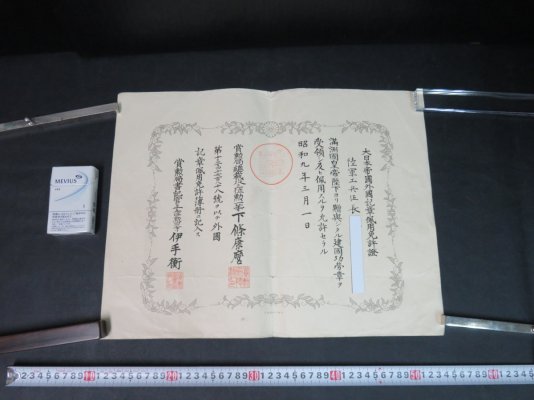 大日本帝國外國記章佩用免許證
陸軍工兵伍長
滿洲國皇帝陛下ヨリ贈與シタル建國功勞章ヲ
受領シ及ヒ佩用スルヲ允許セラル
昭和九年三月一日
賞勲局總裁 下條康麿
號ヲ以テ外國
記章佩用免許簿册ニ記入ス
賞勲局書記官 伊手衡
MEVIUS